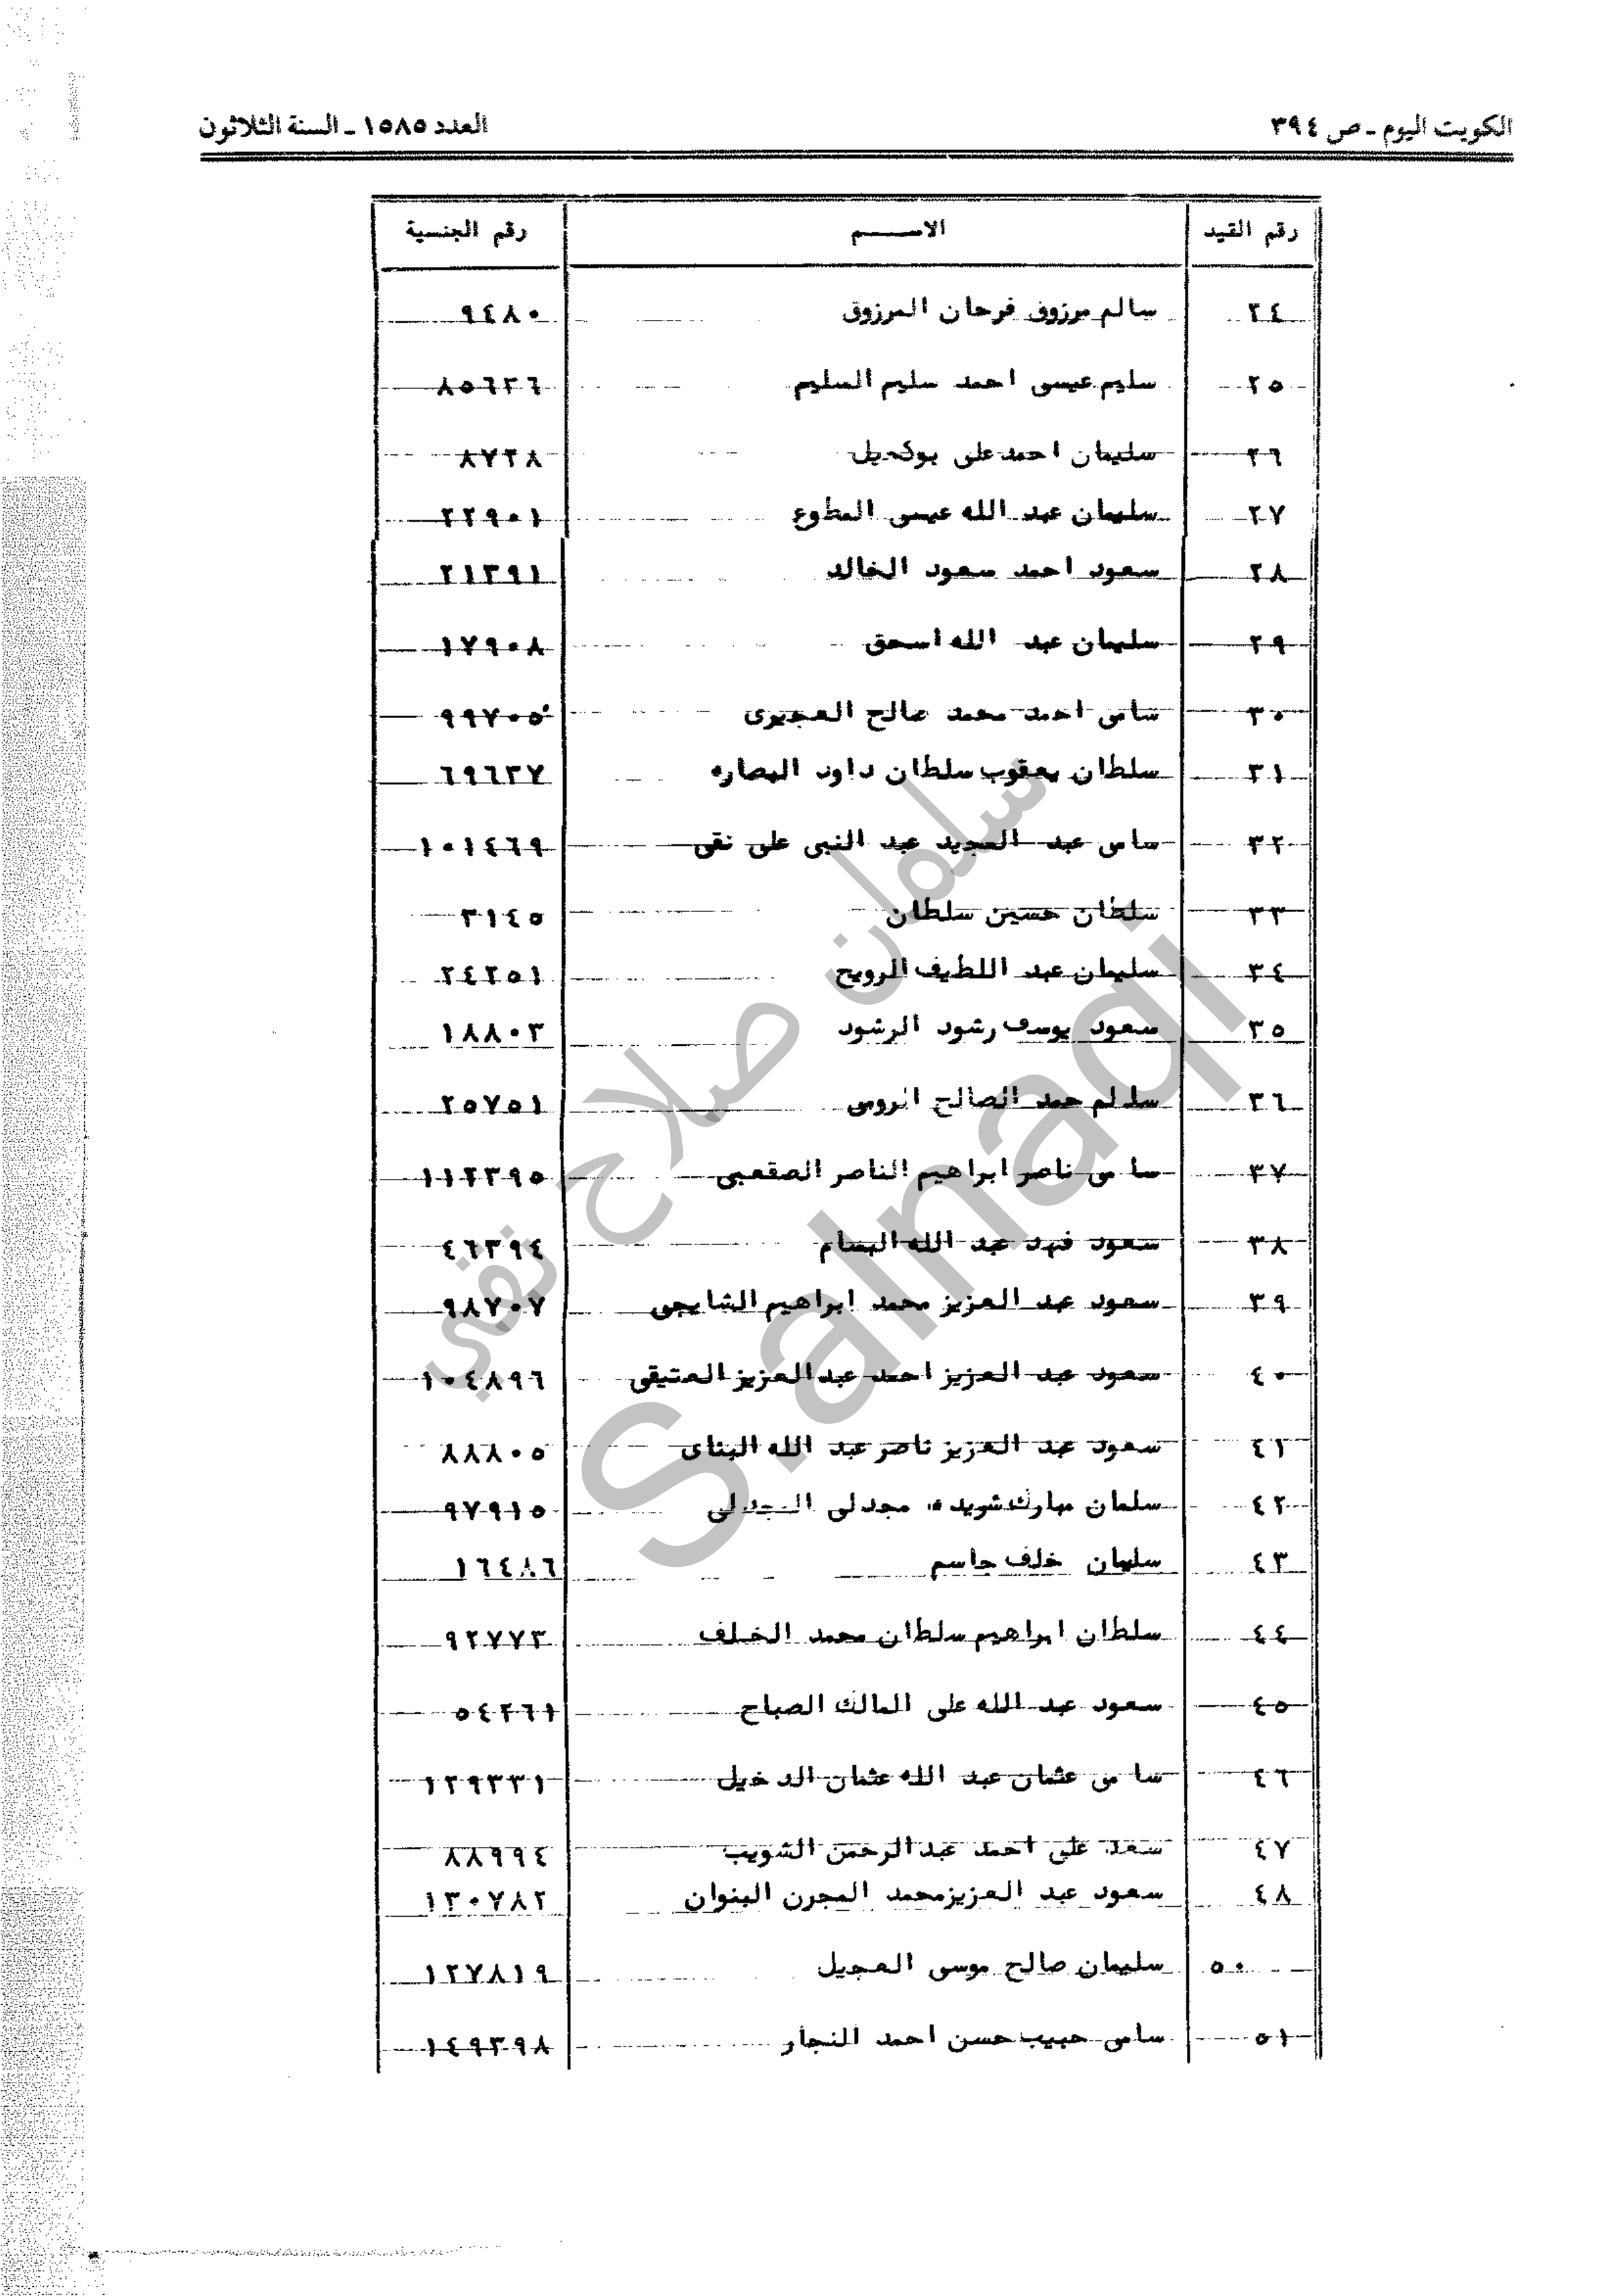 الكويت اليوم - ص ٣٩٤
العدد ١٥٨٥ - السنة الثلاثون
رقم القيد الاســـم رقم الجنسية
٢٤ سالم مرزوق فرحان المرزوق ٩٤٨٠
٢٥ سليم عيسى احمد سليم السليم ٨٥٦٢٦
٢٦ سليمان احمد على بوكحيل ٨٧٢٨
٢٧ سليمان عبد الله عيسى المطوع ٢٢٩٠١
٢٨ سعود احمد سعود الخالد ٢١٣٩١
٢٩ سليمان عبد الله اسحق ١٧٩٠٨
٣٠ سامى احمد محمد صالح العجيرى ٩٩٧٠٥
٣١ سلطان يعقوب سلطان داود البصاره ٦٩٦٢٧
٣٢ سامى عبد المجيد عبد النبى على نقى ١٠١٤٦٩
٣٣ سلطان حسين سلطان ٣١٤٥
٣٤ سليمان عبد اللطيف الرويح ٢٤٢٥١
٣٥ سعود يوسف رشود الرشود ١٨٨٠٣
٣٦ سالم حمد الصالح الرومى ٢٥٧٥١
٣٧ سامى ناصر ابراهيم الناصر الصقعبى ١١٢٣٩٥
٣٨ سعود فهد عبد الله البسام ٤٦٣٩٤
٣٩ سعود عبد العزيز محمد ابراهيم الشايجى ٩٨٧٠٧
٤٠ سعود عبد العزيز احمد عبدالعزيز العتيقى ١٠٤٨٩٦
٤١ سعود عبد العزيز ناصر عبد الله البناى ٨٨٨٠٥
٤٢ سلمان مبارك شويده مجدلى المجدلى ٩٧٩١٥
٤٣ سليمان خلف جاسم ١٦٤٨٦
٤٤ سلطان ابراهيم سلطان محمد الخلف ٩٢٧٧٣
٤٥ سعود عبد الله على المالك الصباح ٥٤٢٦١
٤٦ سامى عثمان عبد الله عثمان الدخيل ١٢٩٣٣١
٤٧ سعد على احمد عبدالرحمن الشويب ٨٨٩٩٤
٤٨ سعود عبد العزيز محمد المجرن البنوان ١٣٠٧٨٢
٥٠ سليمان صالح موسى العجيل ١٢٧٨١٩
٥١ سامى حبيب حسن احمد النجار ١٤٩٣٩٨
سلمان صلاح نقي
S.alnaqi